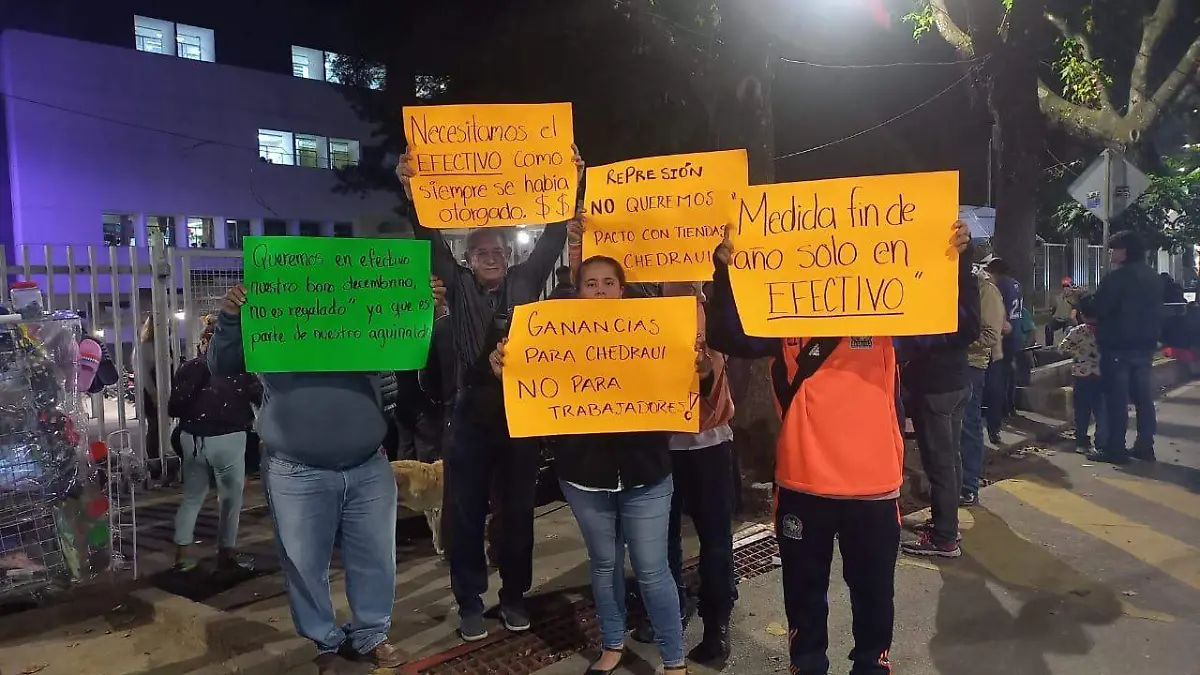 Necesitamos el
EFECTIVO como
siempre se había
otorgado. $ $
REPRESIÓN
NO QUEREMOS
PACTO CON TIENDAS
CHEDRAUI
"Medida fin de
año solo en
EFECTIVO"
Queremos en efectivo
nuestro bono decembrino,
no es regalado" ya que es
parte de nuestro aguinaldo
GANANCIAS
PARA CHEDRAUI
NO PARA
TRABAJADORES!